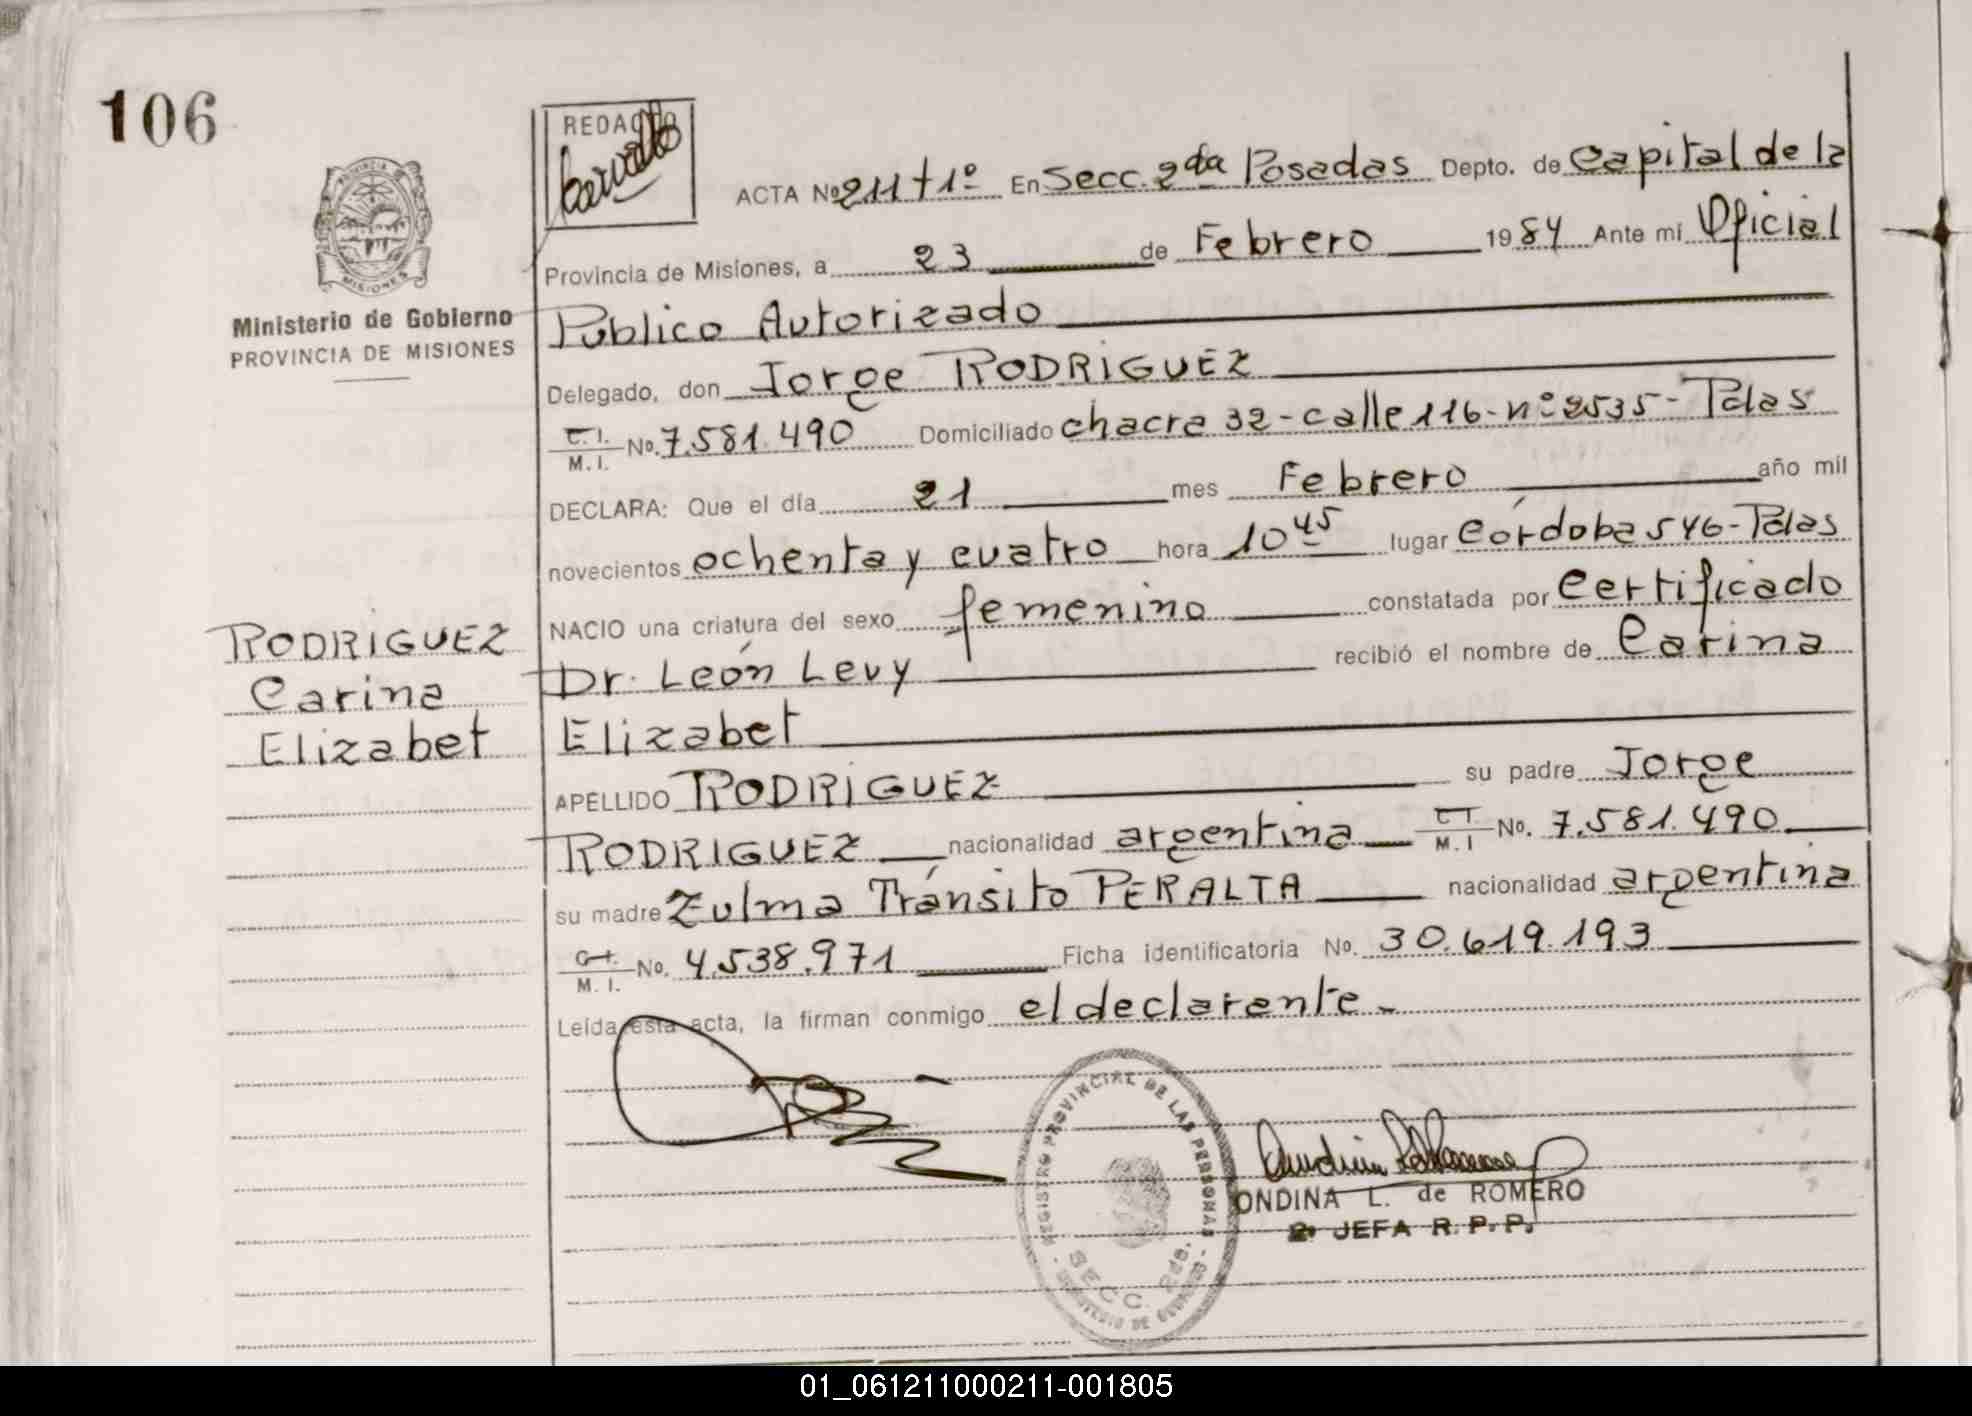 106
REDACTO
Carvallo
PROVINCIA DE
MISIONES
Ministerio de Gobierno
PROVINCIA DE MISIONES
ACTA Nº 211 T 1º En Secc. 2da Posadas Depto. de Capital de la
Provincia de Misiones, a 23 de Febrero 1984 Ante mi Oficial
Público Autorizado
Delegado, don Jorge RODRIGUEZ
C.I. M.I. No. 7.581.490 Domiciliado chacra 32-calle 116-nº 2535-Pdas
DECLARA: Que el día 21 mes Febrero año mil
novecientos ochenta y cuatro hora 10 45 lugar Córdoba 546-Pdas
NACIO una criatura del sexo femenino constatada por Certificado
Dr. León Levy recibió el nombre de Carina
Elizabet
RODRIGUEZ
Carina
Elizabet
APELLIDO RODRIGUEZ su padre Jorge
RODRIGUEZ nacionalidad argentina C.I. M.I No. 7.581.490
su madre Zulma Tránsito PERALTA nacionalidad argentina
C.I. M.I. No. 4.538.971 Ficha identificatoria No. 30.619.193
Leída esta acta, la firman conmigo el declarente.-
REGISTRO PROVINCIAL DE LAS PERSONAS
SECC. 2da.
MINISTERIO DE GOBIERNO
ONDINA L. de ROMERO
2º JEFA R. P. P.
01_061211000211-001805